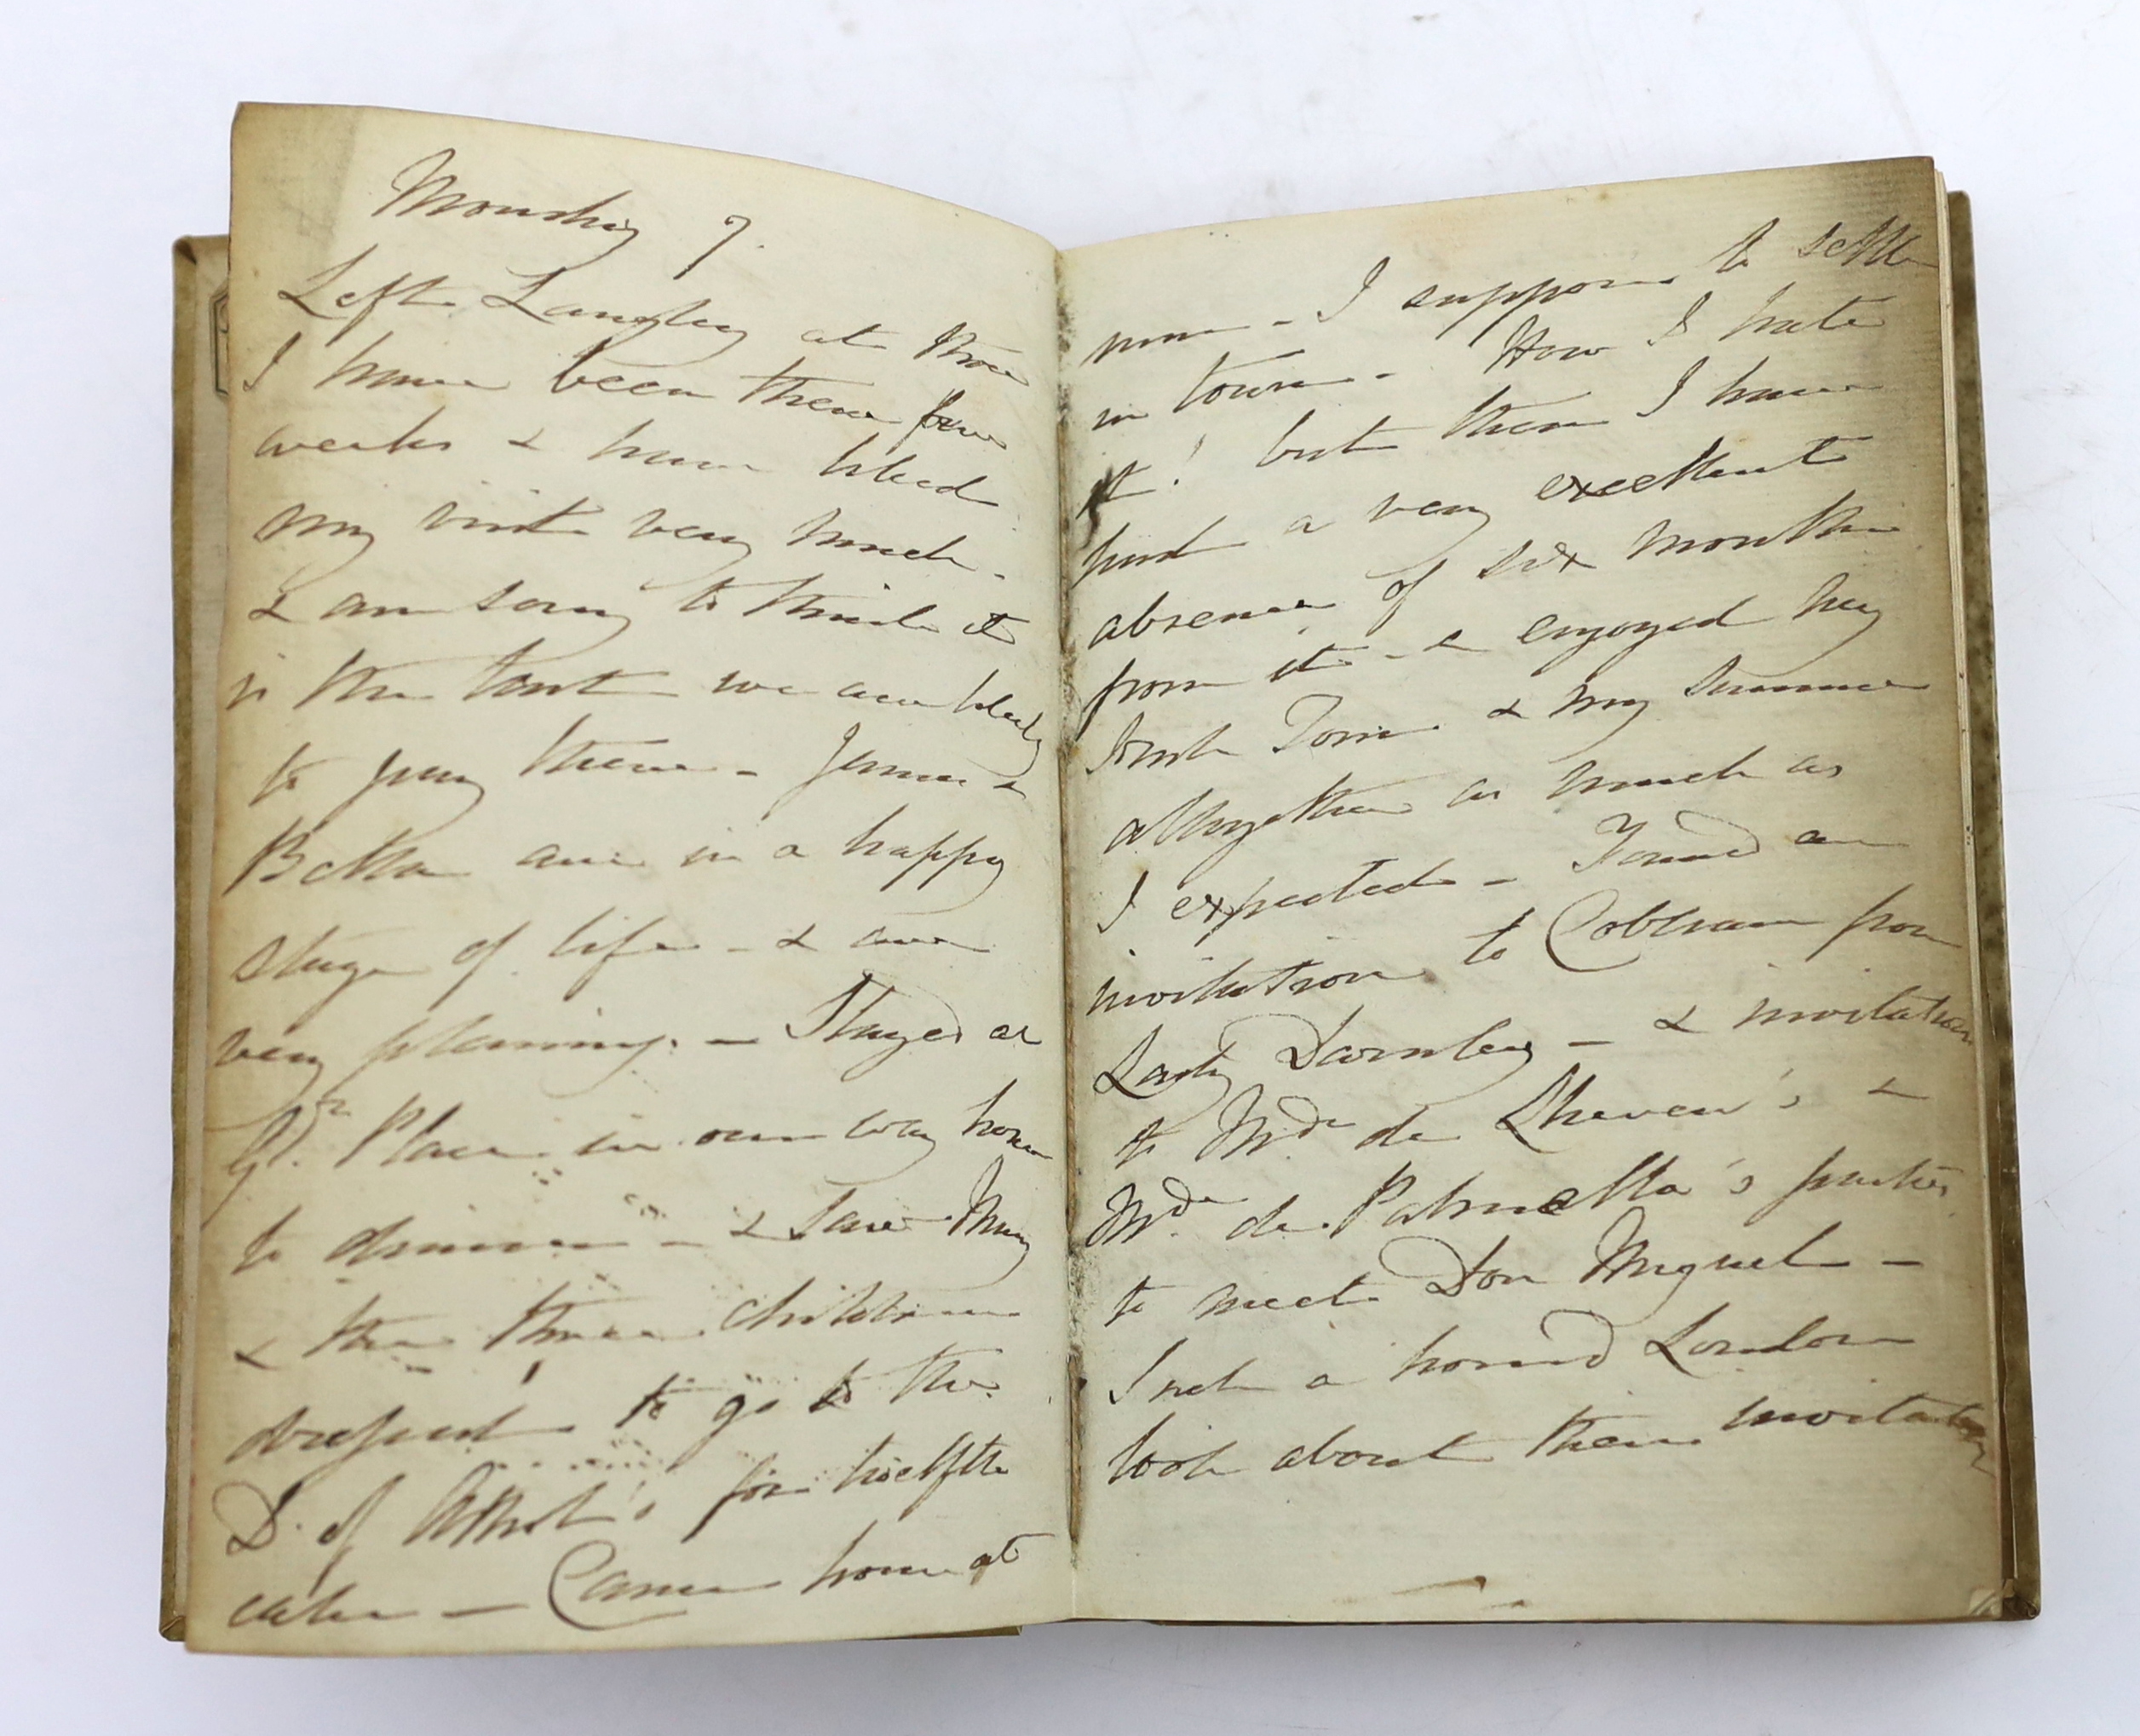 Monday 7.
Left Langley at three
I have been there four
weeks & have liked
my visit very much -
& am sorry to think it
is the last we are likely
to pay there - James &
Bella are in a happy
stage of life - & are
very pleasing. - Stayed at
Gr. Place in our way home
to dinner - & saw Mary
& the three children
dressed to go to the
D. of Atholl's for twelfth
cake - Came home at
nine - I suppose to settle
in town - How I hate
it! but then I have
had a very excellent
absence of six months
from it - & enjoyed my
Irish Tour & my summer
altogether as much as
I expected - Found an
invitation to Cobham from
Lady Darnley - & invitation
to Mde de Lieven's &
Mde de Palmella's parties
to meet Don Miguel -
Such a horrid London
look about these invitations